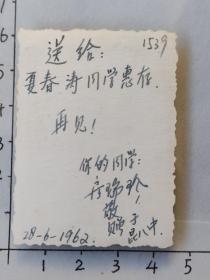 1539
送给:
夏春涛同学惠存.
再见!
你的同学:
瑞珍
敬赠于
昆八中
28-6-1962.